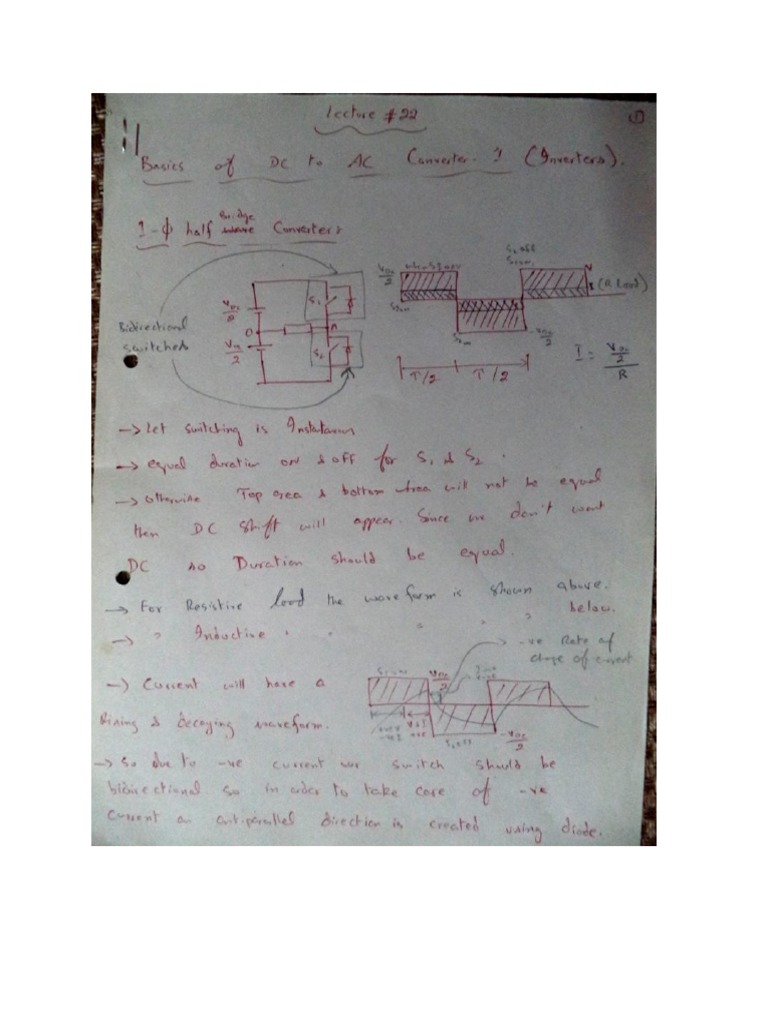 Lecture #22
1
Basics of DC to AC Converter. I (Inverters).
1-φ half Bridge wave Converters
Bidirectional
switches
VDc/2
S1
O
A
VDc/2
S2
VDc/2
S2 off
S1 on
V
I (R Load)
S1 on
S2 on
-VDc/2
T/2 T/2
I = VDc/2 / R
→ Let switching is Instataneous
→ equal duration on & off for S1 & S2.
→ otherwise Top area & bottom Area will not be equal
then DC shift will appear. Since we don't want
DC so Duration should be equal.
→ For Resistive load the waveform is shown above.
→ " Inductive " " " " " below.
-ve Rate of
change of current
→ Current will have a
Rising & decaying waveform.
S1 on
VDc/2
-VDc/2
→ So due to -ve current our switch should be
bidirectional so in order to take care of -ve
Current an antiparallel direction is created using diode.